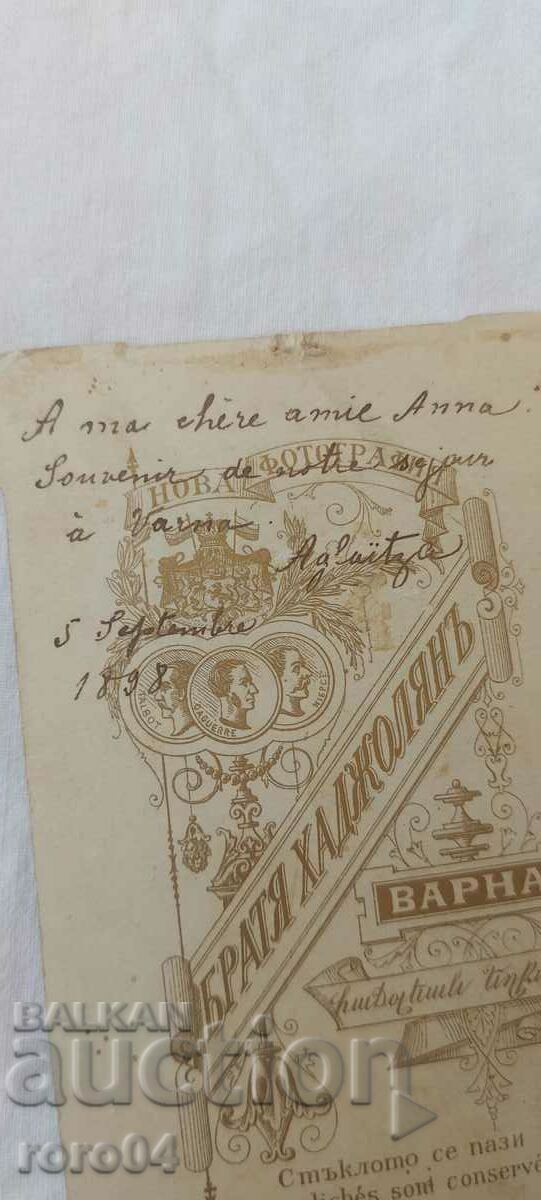 A ma chère amie Anna.
Souvenir de notre sejour
à Varna.
Aglaïtza
5 Septembre
1898
НОВА ФОТОГРАФИ
TALBOT
DAGUERRE
NIEPCE
БРАТЯ ХАДЖОЛЯНЪ
ВАРНА
BALKAN
auction
roro04
Стъклото се пази
clichés sont conservé